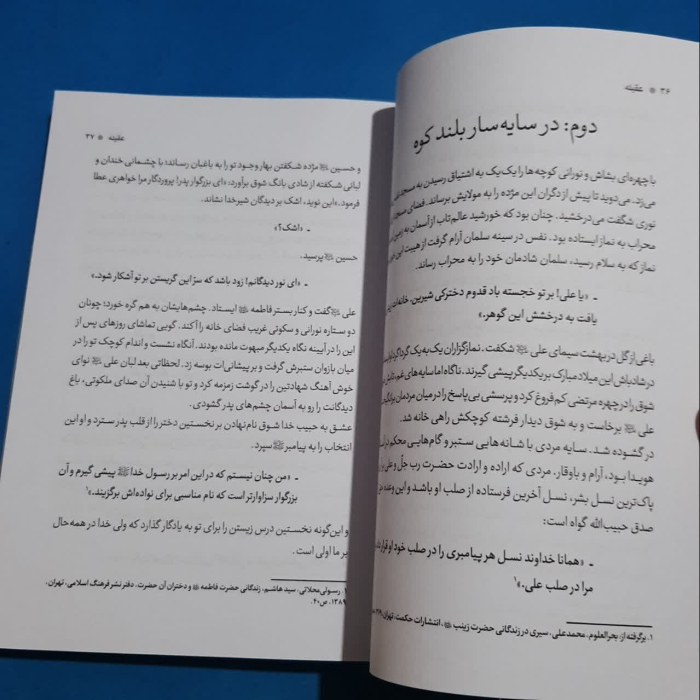 ۳۶ * عقیله
دوم: در سایه‌سار بلند کوه
با چهره‌ای بشاش و نورانی کوچه‌ها را یک‌یک به اشتیاق رسیدن به مسجد
می‌زد. می‌دوید تا پیش از دگران این مژده را به مولایش برساند. فضای مسجد
نوری شگفت می‌درخشید. چنان بود که خورشید عالم‌تاب از آسمان به زمین
محراب به نماز ایستاده بود. نفس در سینه سلمان آرام گرفت از هیبت این
نماز که به سلام رسید، سلمان شادمان خود را به محراب رساند.
- «یا علی! بر تو خجسته باد قدوم دخترکی شیرین. خانه‌ات
یافت به درخشش این گوهر.»
باغی از گل در بهشت سیمای علی شکفت. نمازگزاران یک به یک گرداگرد
در شادباش این میلاد مبارک بر یکدیگر پیشی گیرند. ناگاه اما سایه‌های غم
شوق را در چهره مرتضی کم‌فروغ کرد و پرسشی بی‌پاسخ را در میان مردمان
علی برخاست و به شوق دیدار فرشته کوچکش راهی خانه شد.
در گشوده شد. سایه مردی با شانه‌هایی ستبر و گام‌هایی محکم
هویدا بود، آرام و باوقار. مردی که اراده و ارادت حضرت رب جلّ و علی
پاک‌ترین نسل بشر، نسل آخرین فرستاده از صلب او باشد و این وعده
صدق حبیب‌الله گواه است:
- «همانا خداوند نسل هر پیامبری را در صلب خود او قرار
مرا در صلب علی.»۱
۱. برگرفته از: بحرالعلوم، محمدعلی، سیری در زندگانی حضرت زینب، انتشارات حکمت، تهران،
عقیله * ۳۷
و حسین مژده شکفتن بهار وجود تو را به باغبان رساند؛ با چشمانی خندان و
لبانی شکفته از شادی بانگ شوق برآورد: «ای بزرگوار پدر! پروردگار مرا خواهری عطا
فرمود.» این نوید، اشک بر دیدگان شیر خدا نشاند.
- «اشک؟»
حسین پرسید.
- «ای نور دیدگانم! زود باشد که سرّ این گریستن بر تو آشکار شود.»
علی گفت و کنار بستر فاطمه ایستاد. چشم‌هایشان به هم گره خورد؛ چونان
دو ستاره نورانی و سکوتی غریب فضای خانه را آکند. گویی تماشای روزهای پس از
این را در آیینه نگاه یکدیگر مبهوت مانده بودند. آنگاه نشست و اندام کوچک تو را در
میان بازوان ستبرش گرفت و بر پیشانی‌ات بوسه زد. لحظاتی بعد لبان علی نوای
خوش آهنگ شهادتین را در گوشت زمزمه کرد و تو با شنیدن آن صدای ملکوتی، باغ
دیدگانت را رو به آسمان چشم‌های پدر گشودی.
عشق به حبیب خدا شوق نام‌نهادن بر نخستین دختر را از قلب پدر سترد و او این
انتخاب را به پیامبر سپرد.
- «من چنان نیستم که در این امر بر رسول خدا پیشی گیرم و آن
بزرگوار سزاوارتر است که نام مناسبی برای نواده‌اش برگزیند.»۱
و این‌گونه نخستین درس زیستن را برای تو به یادگار گذارد که ولی خدا در همه حال
بر ما اولی است.
۱. رسولی‌محلاتی، سید هاشم، زندگانی حضرت فاطمه و دختران آن حضرت، دفتر نشر فرهنگ اسلامی، تهران،
۱۳۸۹، ص۴۰.